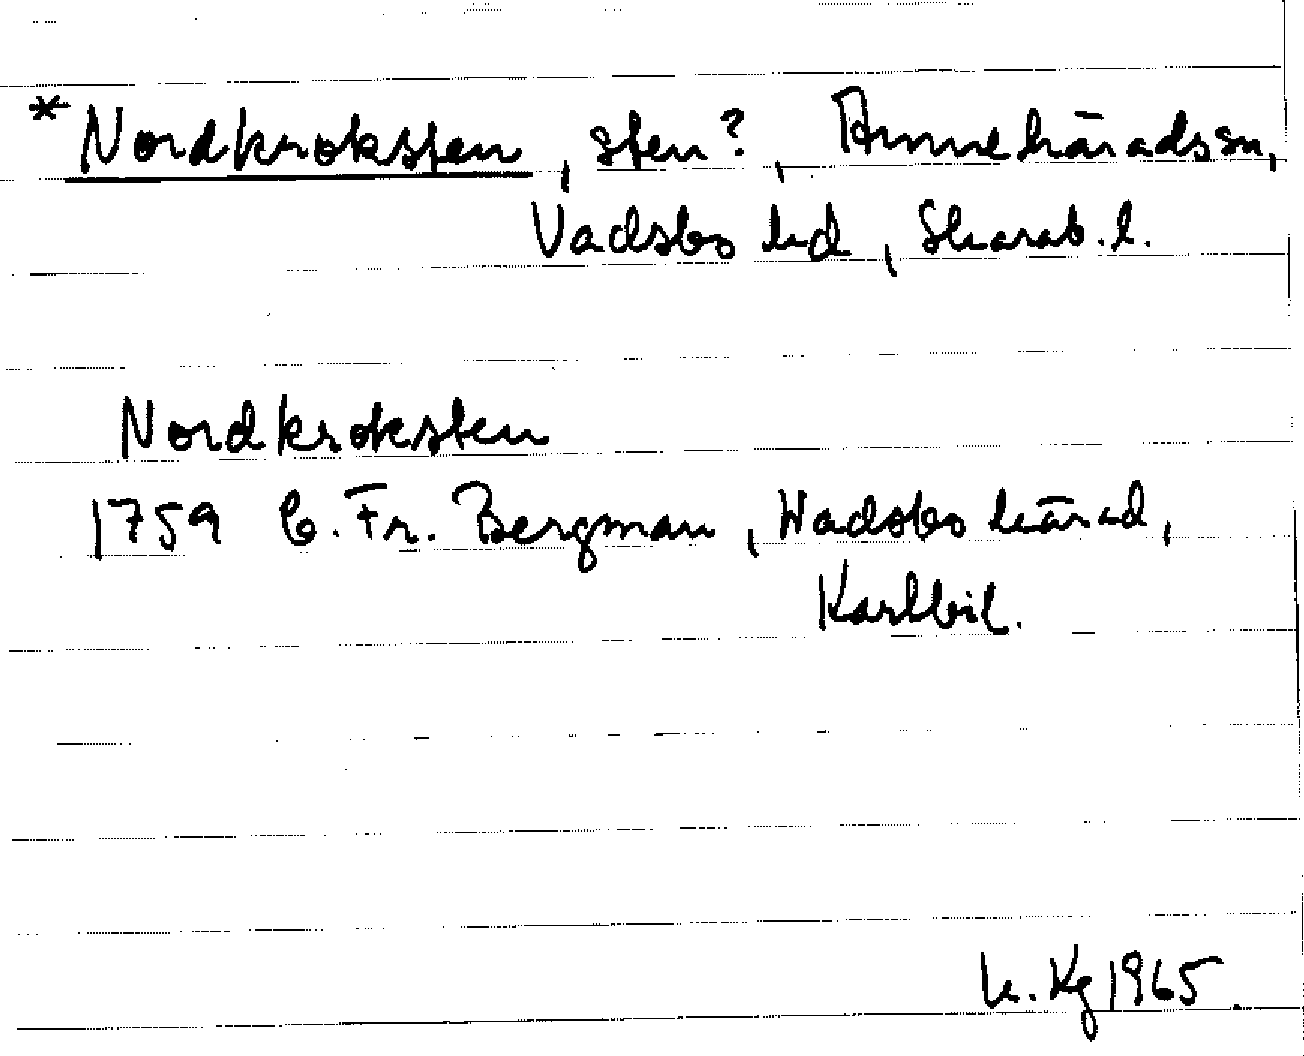 *Nordkroksten, sten?, Amnehäradssn,
Vadsbo hd, Skarab.l.
Nordkroksten
1759 C.Fr. Bergman, Wadsbo härad,
Kartbil.
K.Kg 1965.